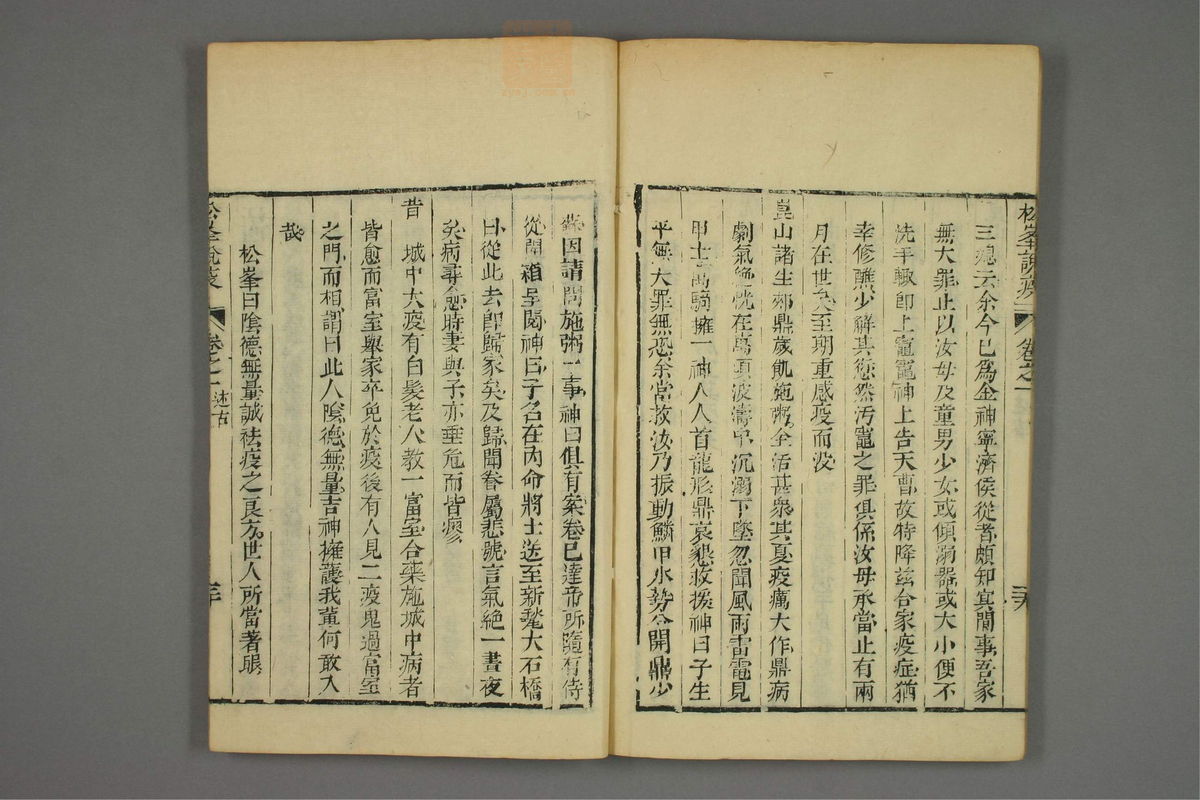 松峯說疫 卷之一 三六
三總云余今已爲金神寧濟侯從者頗知冥間事吾家
無大罪止以汝母及童男少女或傾溺器或大小便不
洗手輙卽上竈竈神上告天曹故特降兹台家疫症猶
幸修醮少觧其愆然汚竈之罪俱係汝母承當止有兩
月在世矣至期重感疫而没
崑山諸生鄭鼎歲飢施粥全活甚衆其夏疫癘大作鼎病
劇氣絶恍在萬頃波濤中沉溺下墜忽聞風雨雷電見
甲士萬騎擁一神人人首龍形鼎哀懇救援神曰子生
平無大罪無恐余當救汝乃振動鱗甲水勢分開鼎少
蘇因請問施粥一事神曰俱有案卷已達帝所隨有侍
從開箱呈閱神曰子名在內命將士送至新鼇大石橋
曰從此去卽歸家矣及歸聞眷屬悲號言氣絶一晝夜
矣病尋愈時妻與子亦垂危而皆瘳
昔 城中大疫有白髮老人教一富室合藥施城中病者
皆愈而富室舉家卒免於疫後有人見二疫鬼過富室
之門而相謂曰此人陰德無量吉神擁護我輩何敢入
哉
松峯曰陰德無量誠祛疫之良方世人所當著眼
松峯說疫 卷之一 述古 三十